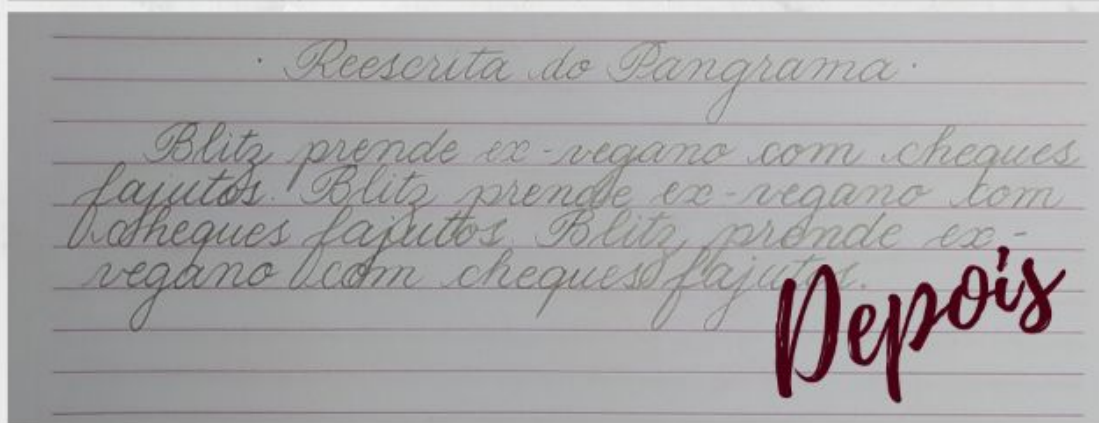 · Reescrita do Pangrama ·
Blitz prende ex-vegano com cheques
fajutos. Blitz prende ex-vegano com
cheques fajutos. Blitz prende ex-
vegano com cheques fajutos.
Depois